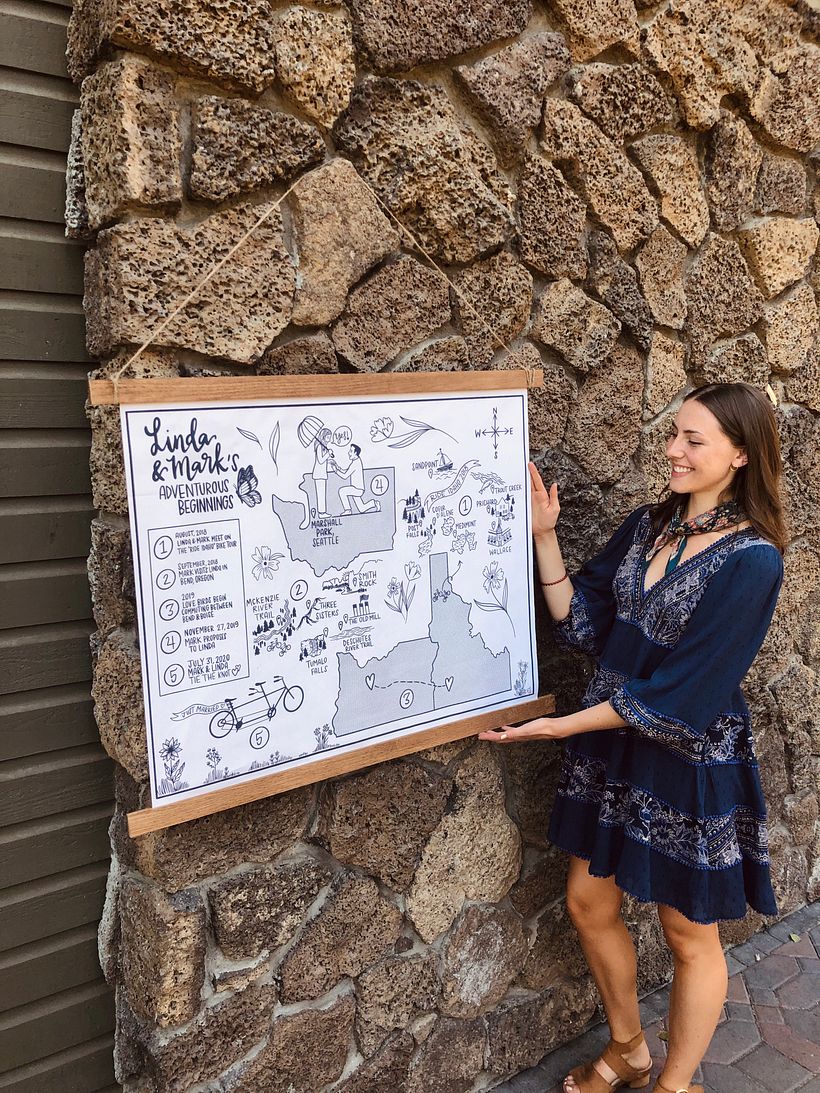 Linda
& Mark's
ADVENTUROUS
BEGINNINGS
1 AUGUST, 2018
LINDA & MARK MEET ON
THE "RIDE IDAHO" BIKE TOUR
2 SEPTEMBER, 2018
MARK VISITS LINDA IN
BEND, OREGON
3 2019
LOVE BIRDS BEGIN
COMMUTING BETWEEN
BEND & BOISE
4 NOVEMBER 27, 2019
MARK PROPOSES
TO LINDA
5 JULY 31, 2020
MARK & LINDA
TIE THE KNOT
JUST MARRIED
5
YES!
4
MARSHALL
PARK,
SEATTLE
N
W E
S
SANDPOINT
RIDE IDAHO
1
TROUT CREEK
PRICHARD
POST
FALLS
COEUR
D'ALENE
MEDIMONT
WALLACE
2
SMITH
ROCK
MCKENZIE
RIVER
TRAIL
THREE
SISTERS
THE OLD MILL
DESCHUTES
RIVER TRAIL
TUMALO
FALLS
3